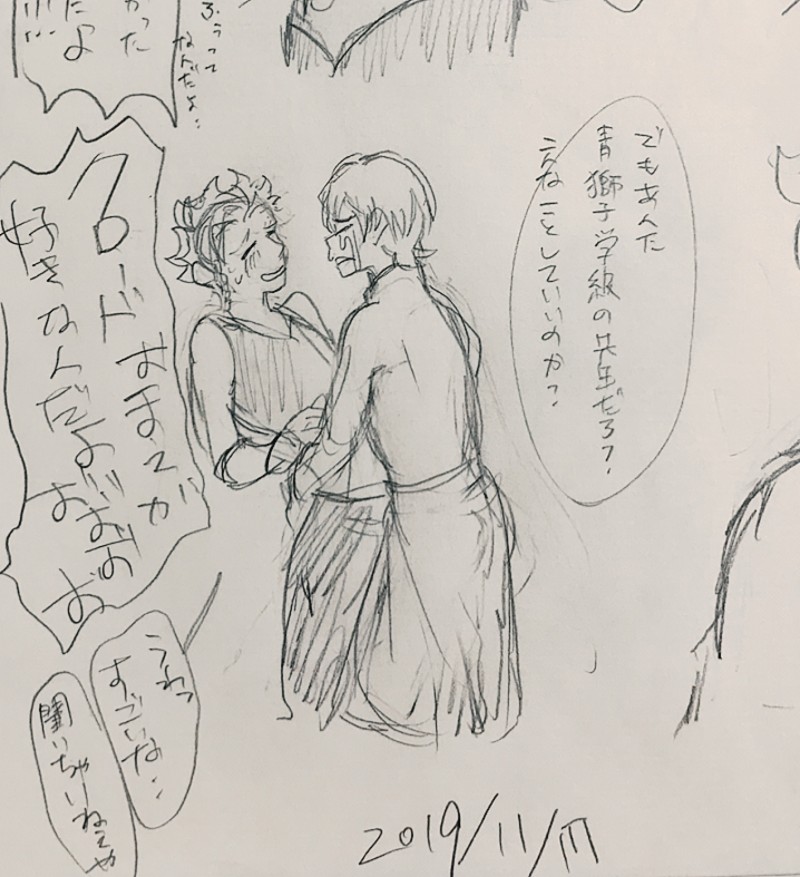 でもあんた
青獅子学級の先生だろ?
こんなことしていいのか?
なんだよ…
かった
だよ
クロードおまえが
好きなんだよぉおおお
うわっ
すごいな…
聞いちゃいねえや
2019/11/17